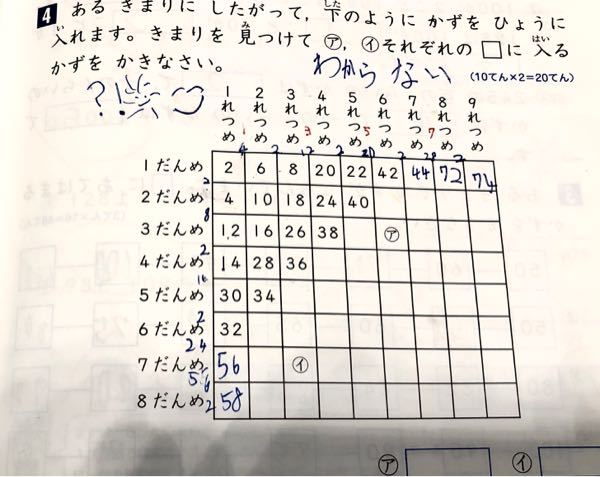 4 ある きまりに したがって，下のように かずを ひょうに
入れます。きまりを 見つけて ㋐，㋑それぞれの □に 入る
かずを かきなさい。
わからない
(10てん×2=20てん)
?!
1れつめ 2れつめ 3れつめ 4れつめ 5れつめ 6れつめ 7れつめ 8れつめ 9れつめ
1だんめ 2 6 8 20 22 42 44 72 74
2だんめ 4 10 18 24 40
3だんめ 12 16 26 38 ㋐
4だんめ 14 28 36
5だんめ 30 34
6だんめ 32
7だんめ 56 ㋑
8だんめ 58
㋐ ㋑